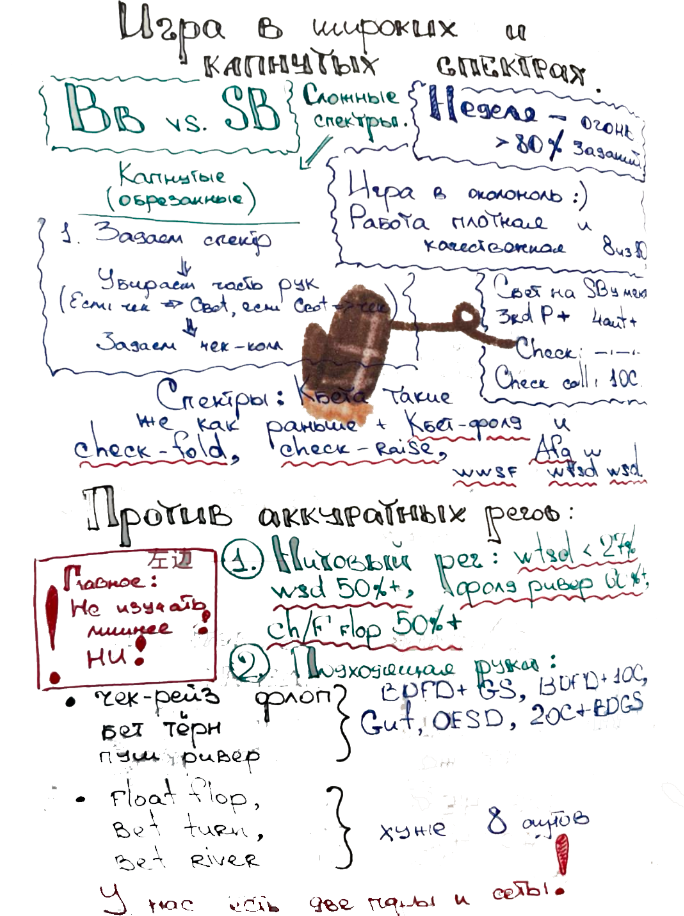 Игра в широких и
капнутых спектрах.
BB vs. SB
Сложные
спектры.
Неделя – огонь
> 80% заданий
Капнутые
(обрезанные)
Игра в околоноль :)
Работа плотная и
качественная 8 из 10
1. Задаем спектр
Убираем часть рук
(Если чек => Cbet, если Cbet => чек)
Задаем чек-колл
Cbet на SB умею
3rd P+ 4aut+
Check: -·-·-
Check call: 1OC.
Спектры: Кбета такие
же как раньше + Кбет-фолд и
check-fold, check-raise, Afq w
wwsf wtsd wsd
Против аккуратных регов:
左边
Главное:
Не изучать
лишнее
НИ!
1. Нитовый рег: wtsd < 27%
wsd 50%+, фолд ривер 60%+,
ch/F flop 50%+
2. Подходящая рука:
• чек-рейз флоп
бет тёрн
пуш ривер
BDFD+GS, BDFD+1OC,
Gut, OESD, 2OC+BDGS
• Float flop,
Bet turn,
Bet river
хуже 8 аутов
У нас есть две пары и сеты!